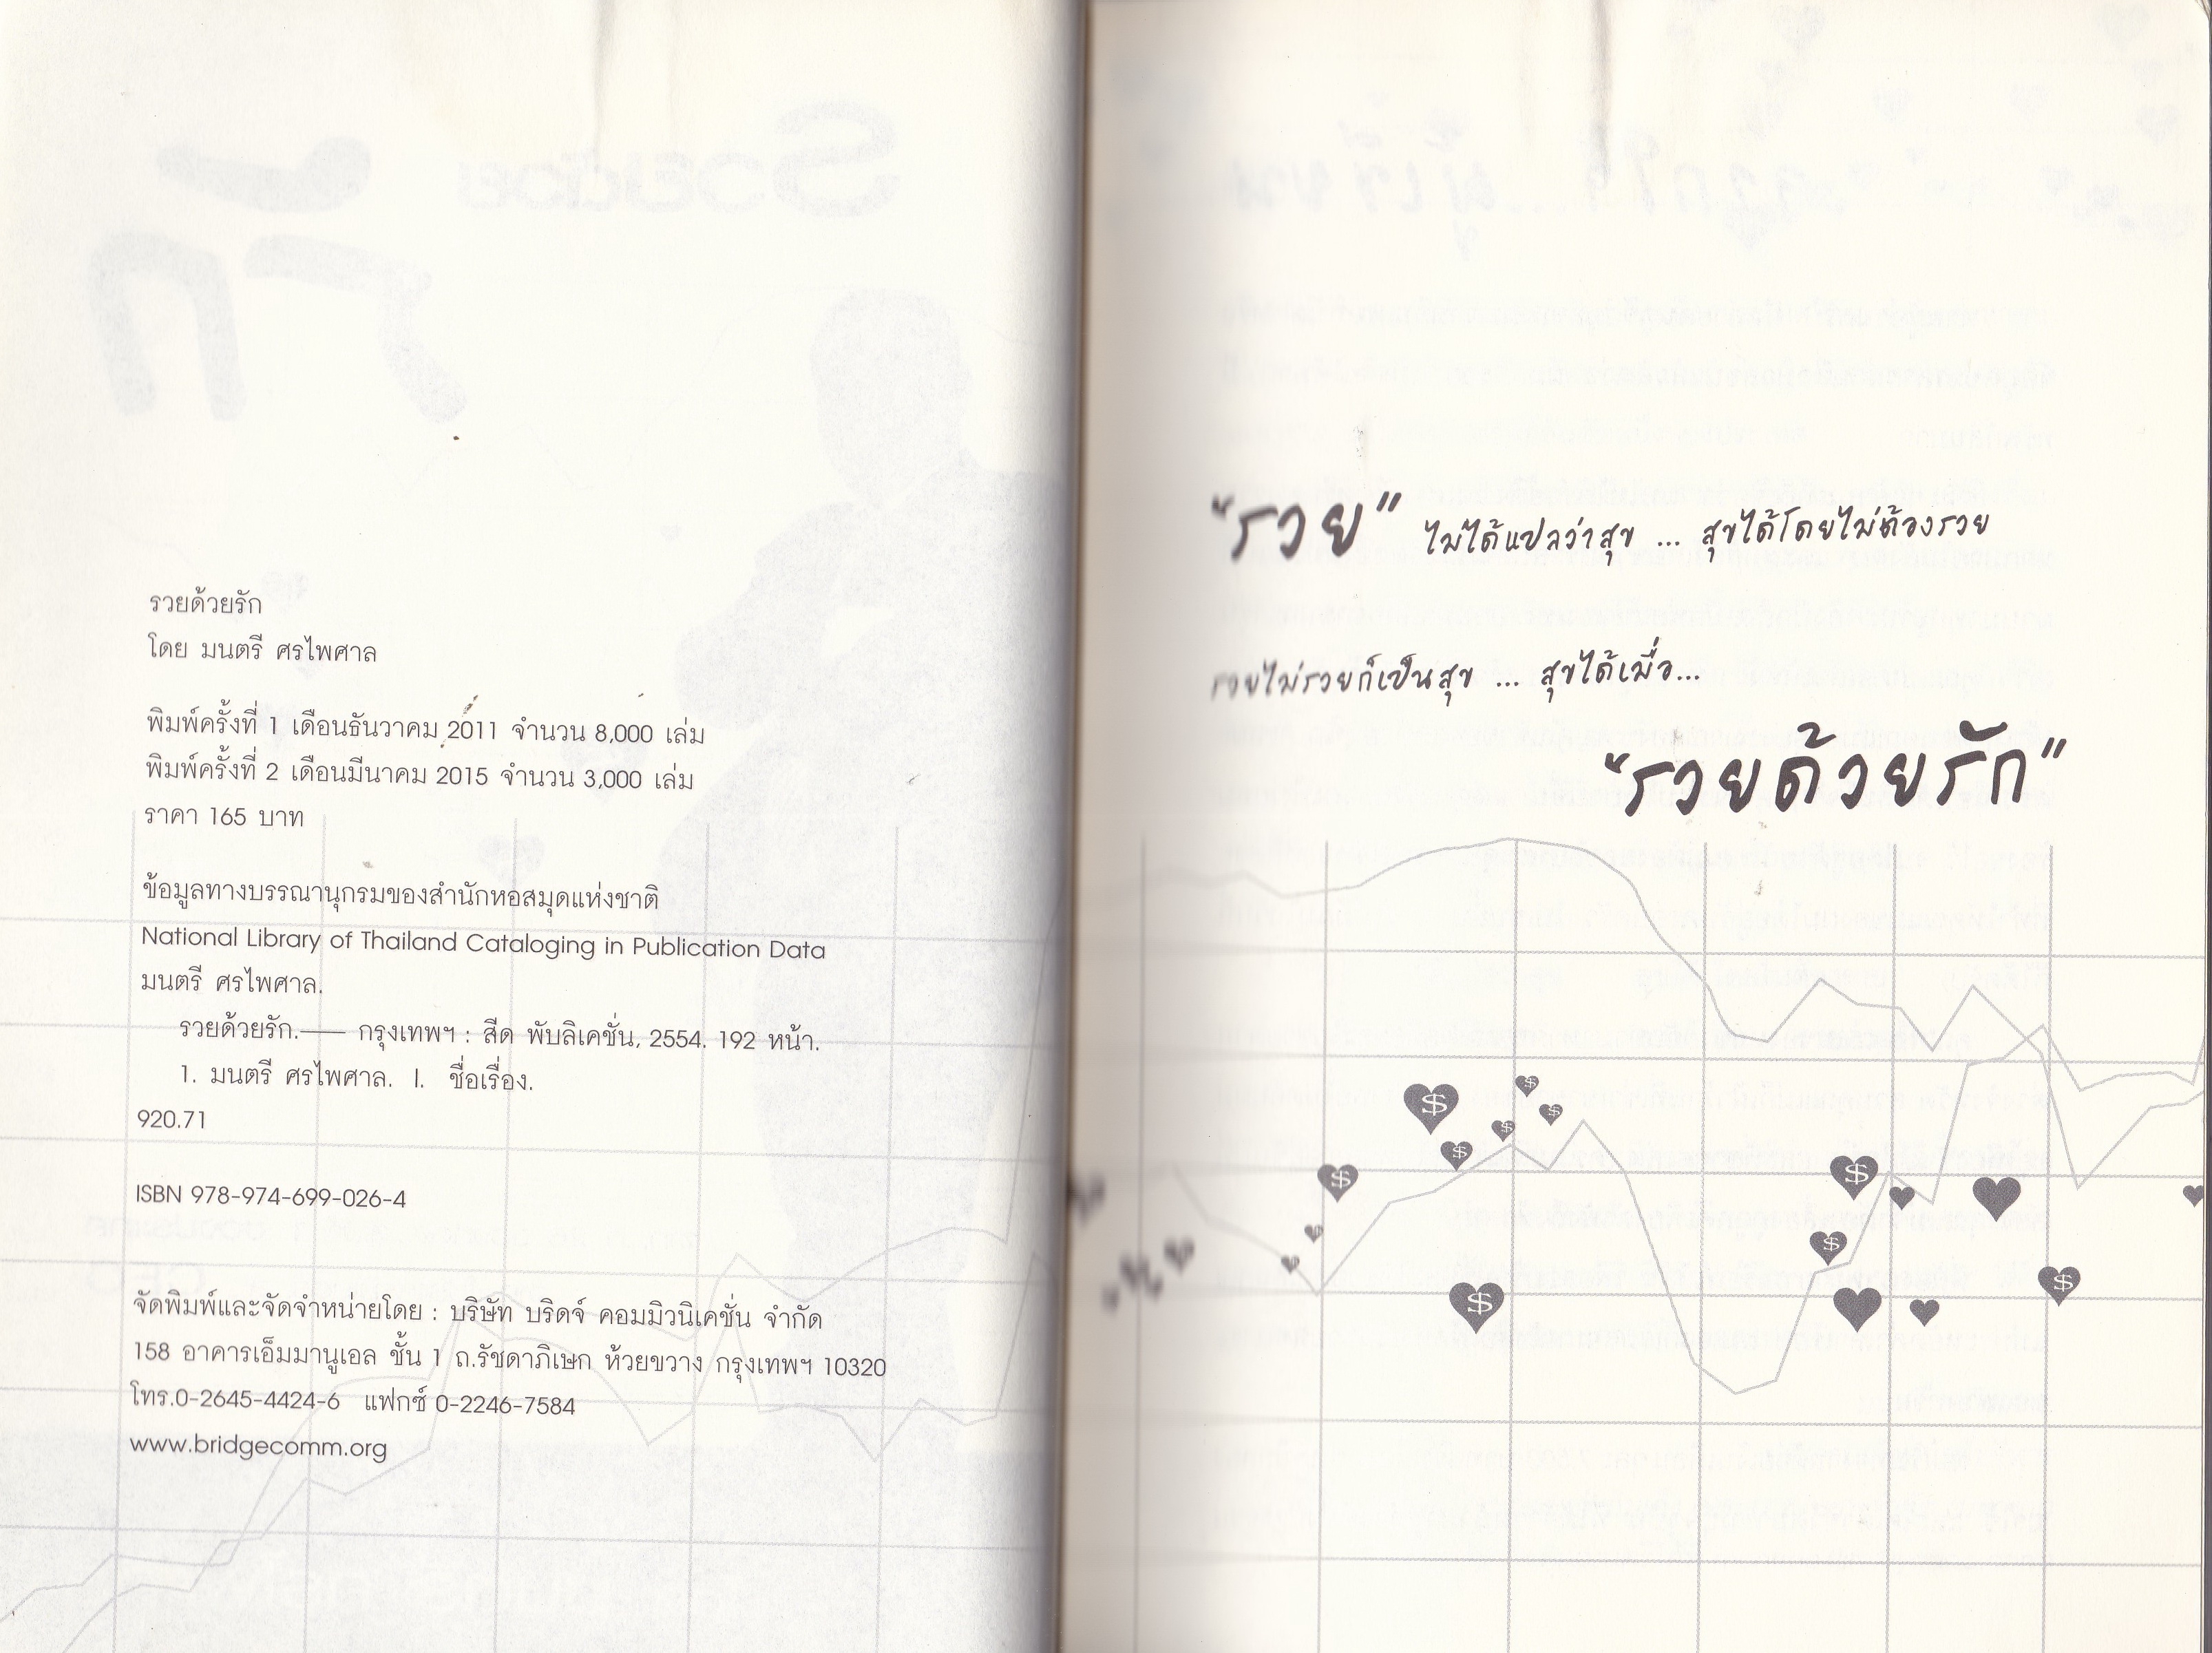 รวยด้วยรัก
โดย มนตรี ศรไพศาล
พิมพ์ครั้งที่ 1 เดือนธันวาคม 2011 จำนวน 8,000 เล่ม
พิมพ์ครั้งที่ 2 เดือนมีนาคม 2015 จำนวน 3,000 เล่ม
ราคา 165 บาท
ข้อมูลทางบรรณานุกรมของสำนักหอสมุดแห่งชาติ
National Library of Thailand Cataloging in Publication Data
มนตรี ศรไพศาล.
รวยด้วยรัก.—— กรุงเทพฯ : สีด พับลิเคชั่น, 2554. 192 หน้า.
1. มนตรี ศรไพศาล. I. ชื่อเรื่อง.
920.71
ISBN 978-974-699-026-4
จัดพิมพ์และจัดจำหน่ายโดย : บริษัท บริดจ์ คอมมิวนิเคชั่น จำกัด
158 อาคารเอ็มมานูเอล ชั้น 1 ถ.รัชดาภิเษก ห้วยขวาง กรุงเทพฯ 10320
โทร.0-2645-4424-6 แฟกซ์ 0-2246-7584
www.bridgecomm.org
"รวย" ไม่ได้แปลว่าสุข ... สุขได้โดยไม่ต้องรวย
รวยไม่รวยก็เป็นสุข ... สุขได้เมื่อ...
"รวยด้วยรัก"